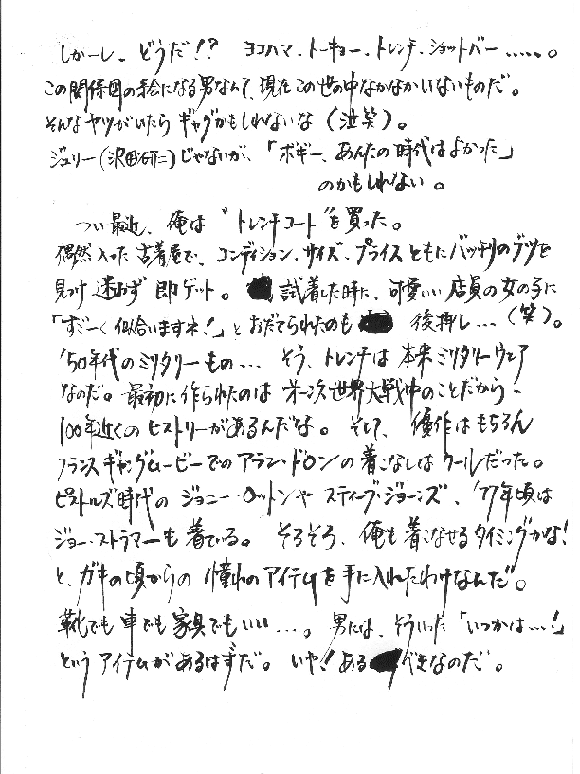 しかーし、どうだ!? ヨコハマ、トーキョー、トレンチ、ショットバー……。
この関係図の絵になる男なんて、現在この世の中なかなかいないものだ。
そんなヤツがいたらギャグかもしれないな(泣笑)。
ジュリー(沢田研二)じゃないが、「ボギー、あんたの時代はよかった」
のかもしれない。
つい最近、俺は“トレンチコート”を買った。
偶然入った古着屋で、コンディション、サイズ、プライスともにバッチリのブツを
見つけ迷わず即ゲット。試着した時に、可愛いい店員の女の子に
「すごーく似合いますネ!」とおだてられたのも後押し…(笑)。
'50年代のミリタリーもの… そう、トレンチは本来ミリタリーウェア
なのだ。最初に作られたのは第一次世界大戦中のことだから、
100年近くのヒストリーがあるんだな。そして、優作はもちろん
フランスギャングムービーでのアラン・ドロンの着こなしはクールだった。
ピストルズ時代のジョニー・ロットンやスティーブ・ジョーンズ、'77年頃は
ジョー・ストラマーも着ている。そろそろ、俺も着こなせるタイミングかな!
と、ガキの頃からの憧れのアイテムを手に入れたわけなんだ。
靴でも車でも家具でもいい…。男には、そういった「いつかは…!」
というアイテムがあるはずだ。いや!あるべきなのだ。